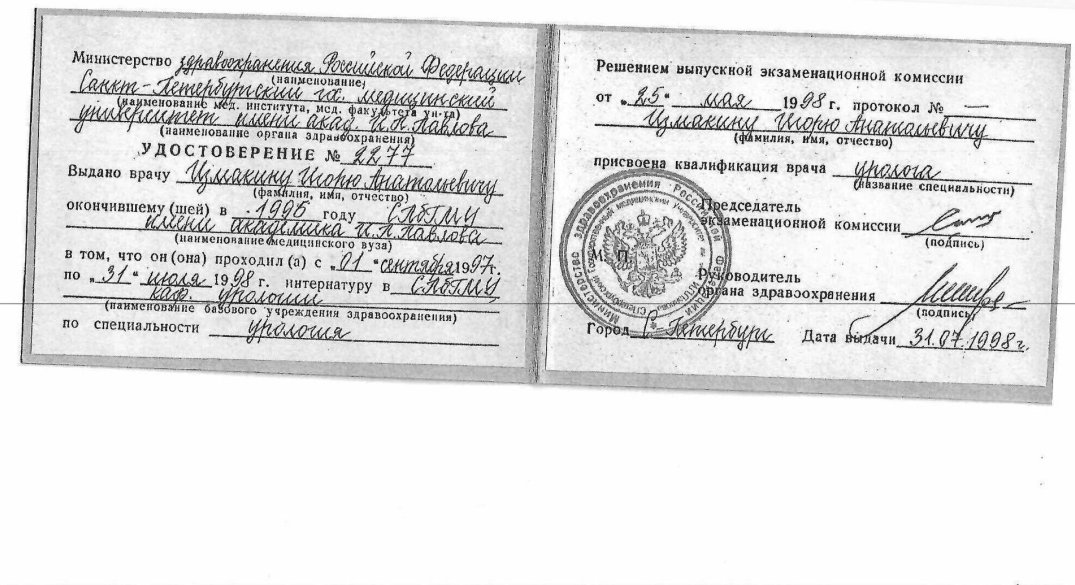 Министерство здравоохранения Российской Федерации
(наименование)
Санкт-Петербургский гос. медицинский
(наименование мед. института, мед. факультета ун-та)
университет имени акад. И.П.Павлова
(наименование органа здравоохранения)
УДОСТОВЕРЕНИЕ № 2277
Выдано врачу Измакину Игорю Анатольевичу
(фамилия, имя, отчество)
окончившему (шей) в 1995 году СПбГМУ
имени академика И.П.Павлова
(наименование медицинского вуза)
в том, что он (она) проходил (а) с „01 “ сентября 1997 г.
по „31“ июля 1998 г. интернатуру в СПбГМУ
каф. урологии
(наименование базового учреждения здравоохранения)
по специальности урология
Решением выпускной экзаменационной комиссии
от „25“ мая 1998 г. протокол № —
Измакину Игорю Анатольевичу
(фамилия, имя, отчество)
присвоена квалификация врача уролога
(название специальности)
Председатель
экзаменационной комиссии
(подпись)
М. П.
Руководитель
органа здравоохранения
(подпись)
Город С-Петербург Дата выдачи 31.07.1998г.
Министерство здравоохранения Российской Федерации